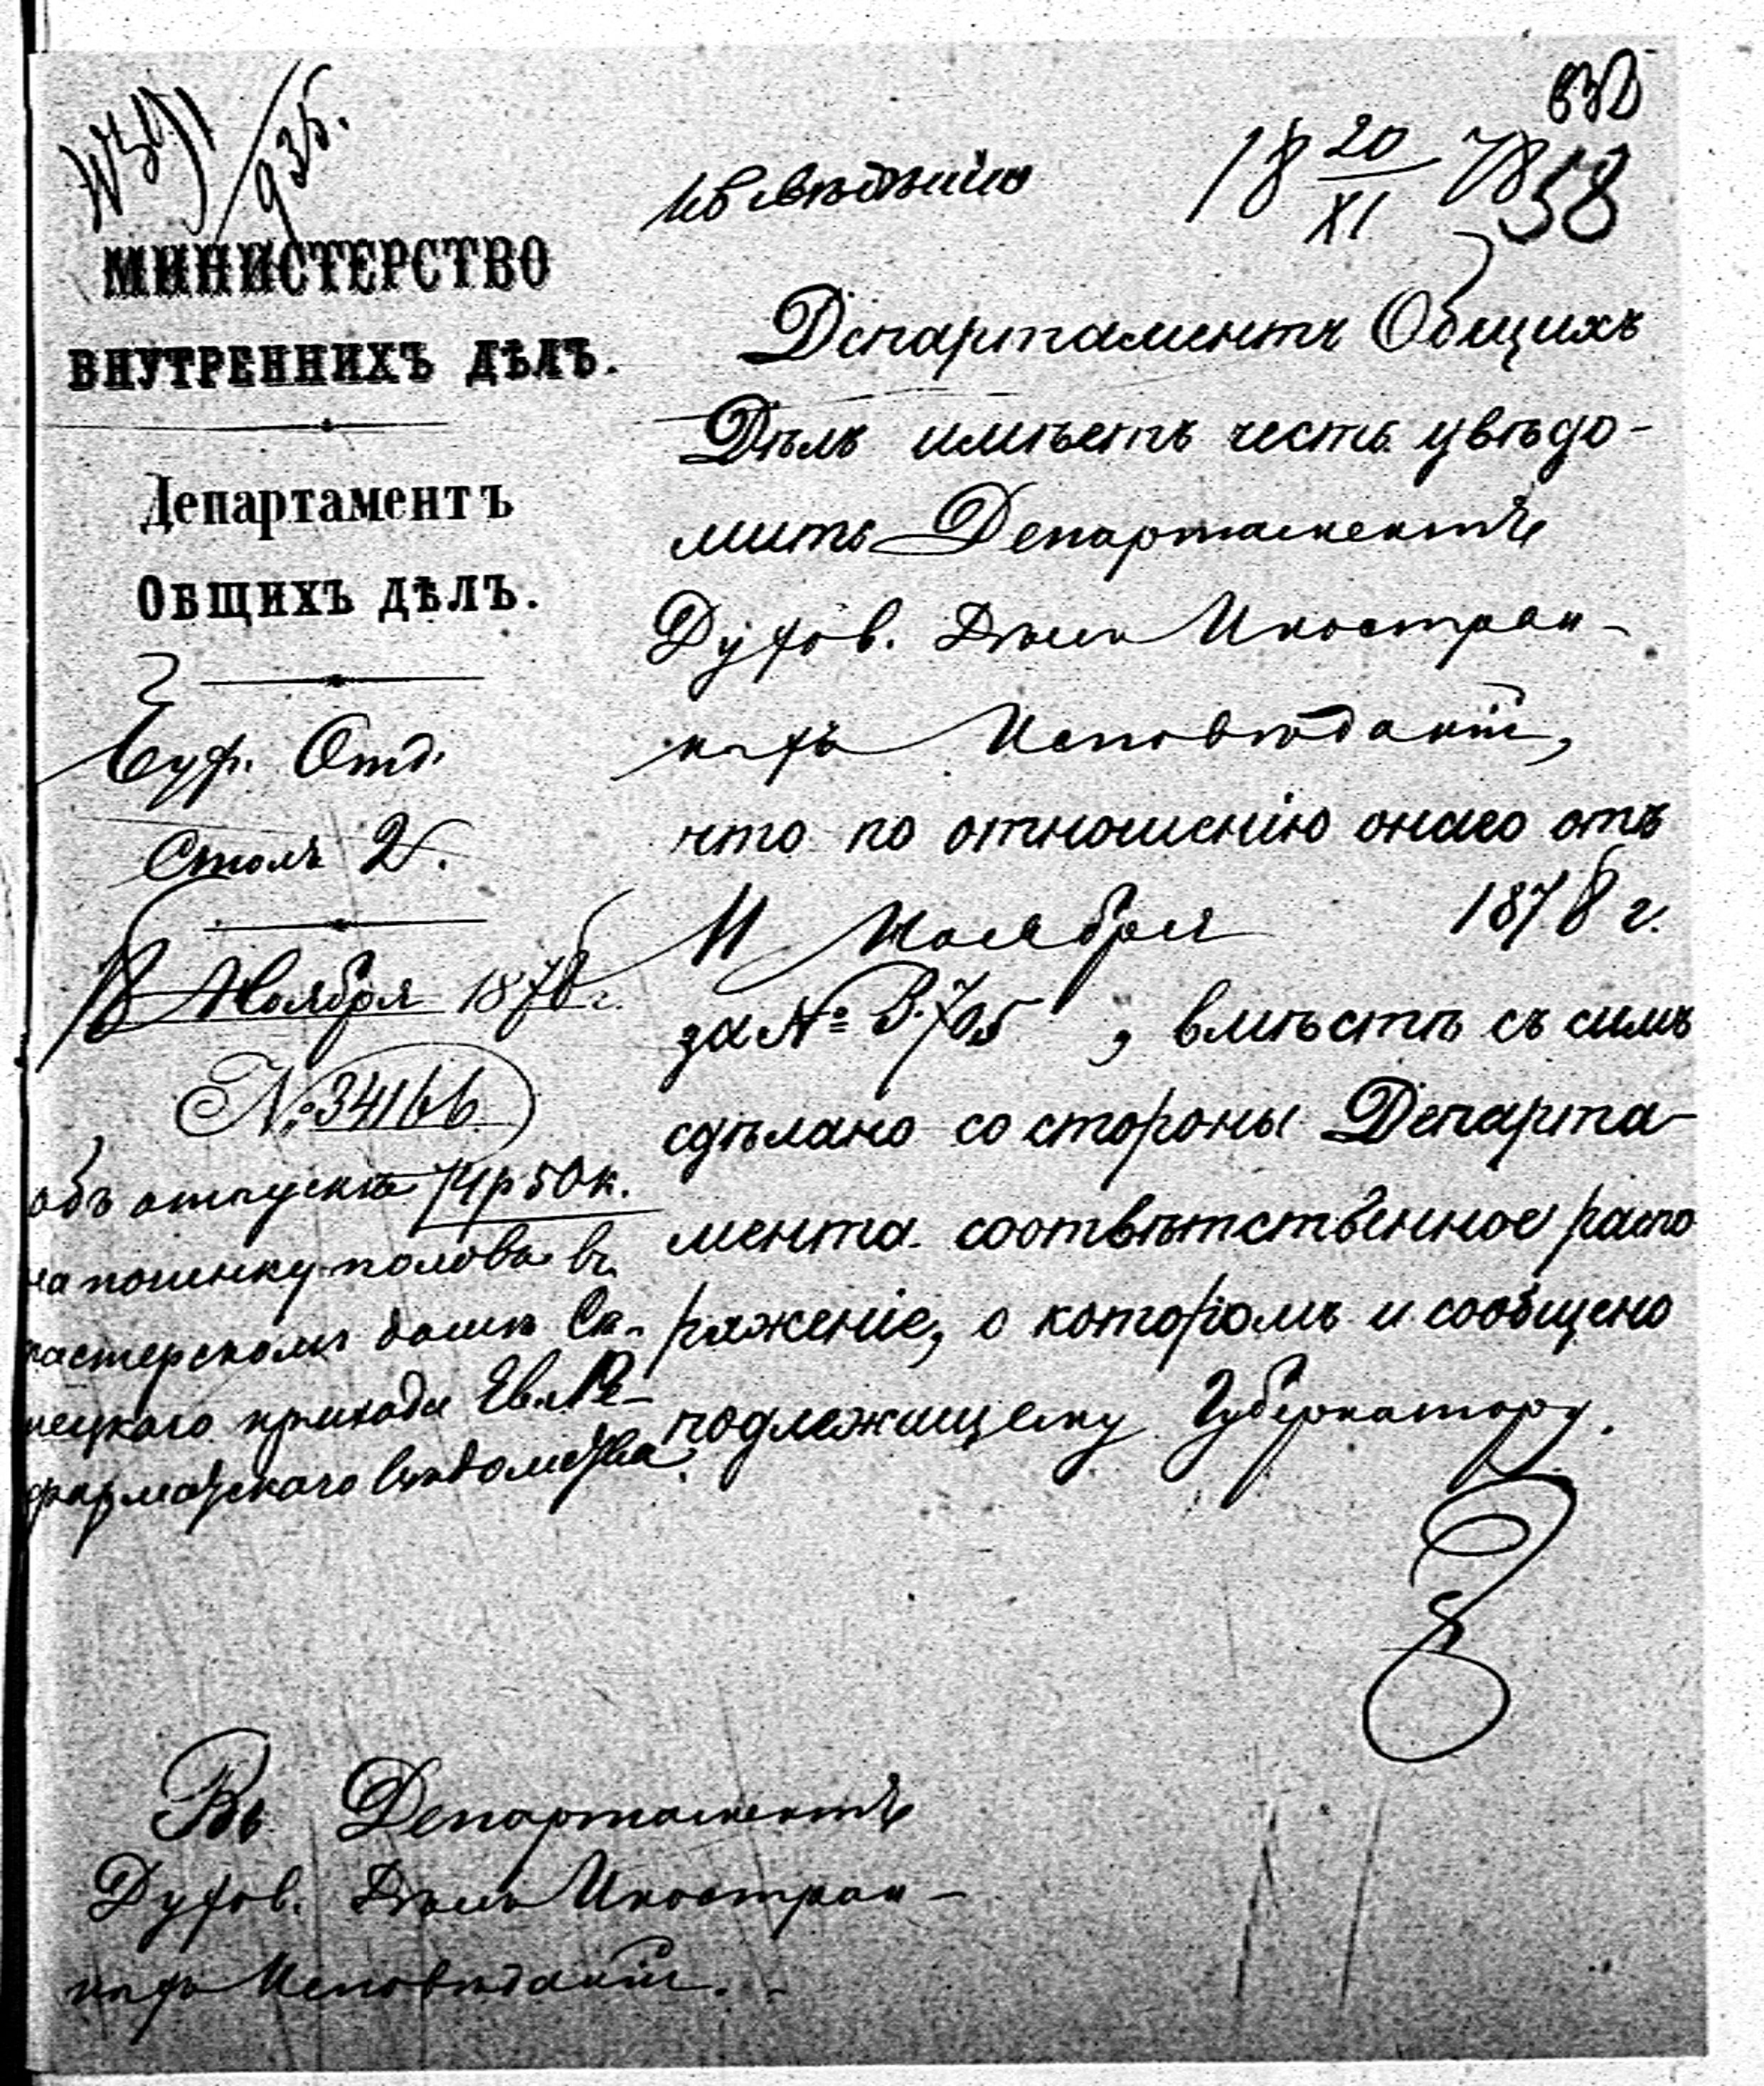 935.
58
Къ свѣдѣнію
18 20/XI 78
МИНИСТЕРСТВО
ВНУТРЕННИХЪ ДѢЛЪ.
Департаментъ
ОБЩИХЪ ДѢЛЪ.
Отд.
Столъ 2.
18 Ноября 1878 г.
№ 3416
объ отпускѣ 74 р 50 к.
на починку половъ въ
пасterskomъ домѣ Са-
прихода Ев. Ре-
форматскаго вѣдомства.
Департаментъ Общихъ
Дѣлъ имѣетъ честь увѣдо-
мить Департаментъ
Духов. Дѣлъ Иностран-
ныхъ Исповѣданій,
что по отношенію онаго отъ
11 Ноября 1878 г.
за № 3705, вмѣстѣ съ симъ
сдѣлано со стороны Департа-
мента соотвѣтственное распо
ряженіе, о которомъ и сообщено
подлежащему Губернатору.
Въ Департаментъ
Духов. Дѣлъ Иностран-
ныхъ Исповѣданій.